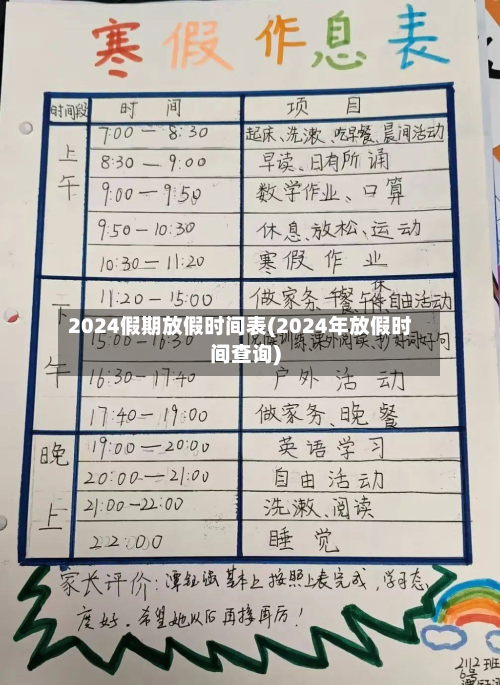 寒假作息表
时间段 时 间 项 目
上午
7:00 — 8:30 起床、洗漱、吃早餐、晨间活动
8:30 — 9:00 早读、日有所诵
9:00 — 9:50 数学作业、口算
9:50 — 10:30 休息、放松、运动
10:30 — 11:20 寒假作业
下午
11:20 — 15:00 做家务、午餐、午休、自由活动
2024假期放假时间表(2024年放假时
间查询)
15:00 — 16:30 训练、课外阅读、抄好词好句
16:30 — 17:40 户外活动
17:40 — 19:00 做家务、晚餐
晚上
19:00 — 20:00 英语学习
20:00 — 21:00 自由活动
21:00 — 22:00 洗漱、阅读
22:00 睡觉
家长评价: 基本上按照上表完成,学习态
度好。希望她以后再接再厉!
2112班
6号